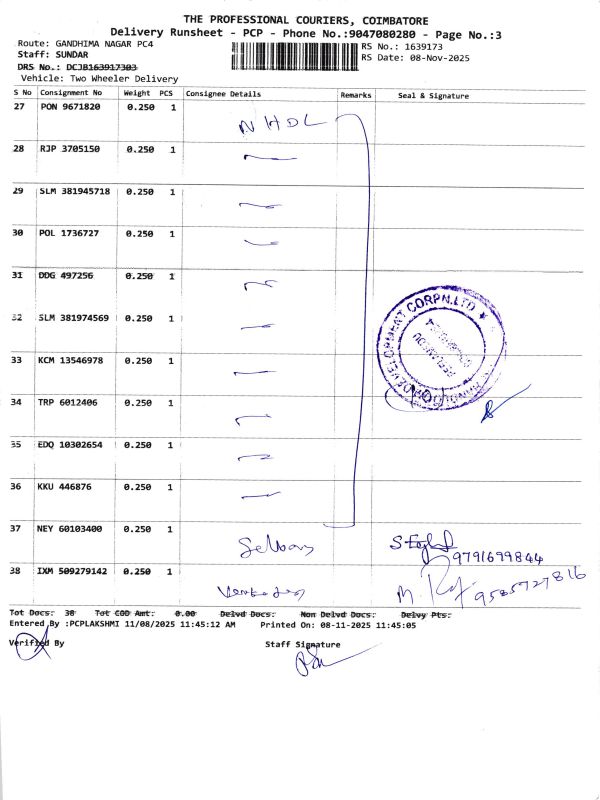 THE PROFESSIONAL COURIERS, COIMBATORE
Delivery Runsheet - PCP - Phone No.:9047080280 - Page No.:3
Route: GANDHIMA NAGAR PC4
Staff: SUNDAR
DRS No.: DCJB163917303
Vehicle: Two Wheeler Delivery
RS No.: 1639173
RS Date: 08-Nov-2025
S No Consignment No Weight PCS Consignee Details Remarks Seal & Signature
27 PON 9671820 0.250 1 NHDC
28 RJP 3705150 0.250 1
29 SLM 381945718 0.250 1
30 POL 1736727 0.250 1
31 DDG 497256 0.250 1
32 SLM 381974569 0.250 1
33 KCM 13546978 0.250 1
34 TRP 6012406 0.250 1
35 EDQ 10302654 0.250 1
36 KKU 446876 0.250 1
DEVELOPMENT CORPN.LTD
37 NEY 60103400 0.250 1 9791699844
38 IXM 509279142 0.250 1 9585727816
Tot Docs: 38 Tot COD Amt: 0.00 Delvd Docs: Non Delvd Docs: Delvy Pts:
Entered By :PCPLAKSHMI 11/08/2025 11:45:12 AM Printed On: 08-11-2025 11:45:05
Verified By Staff Signature